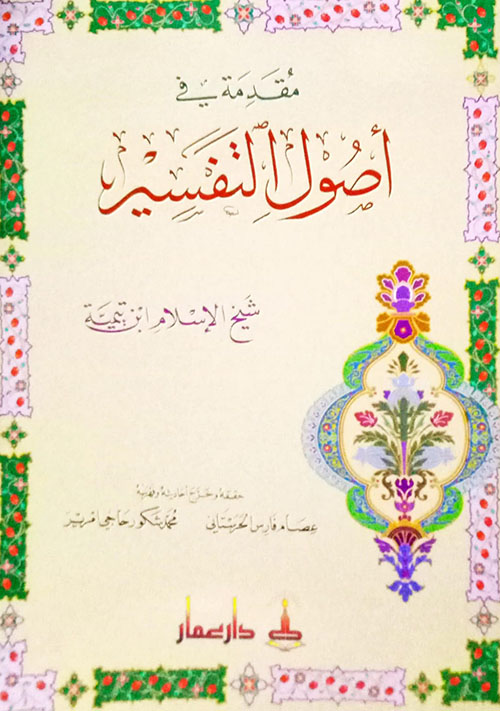 مُقَدِمَة في
أُصُول التَفسِير
شَيخ الإسلام ابن تيمية
حققه وخرّج أحاديثه وفقهه
عصام فارس الحرستاني محمد شكور حاجي امرير
دار عمار